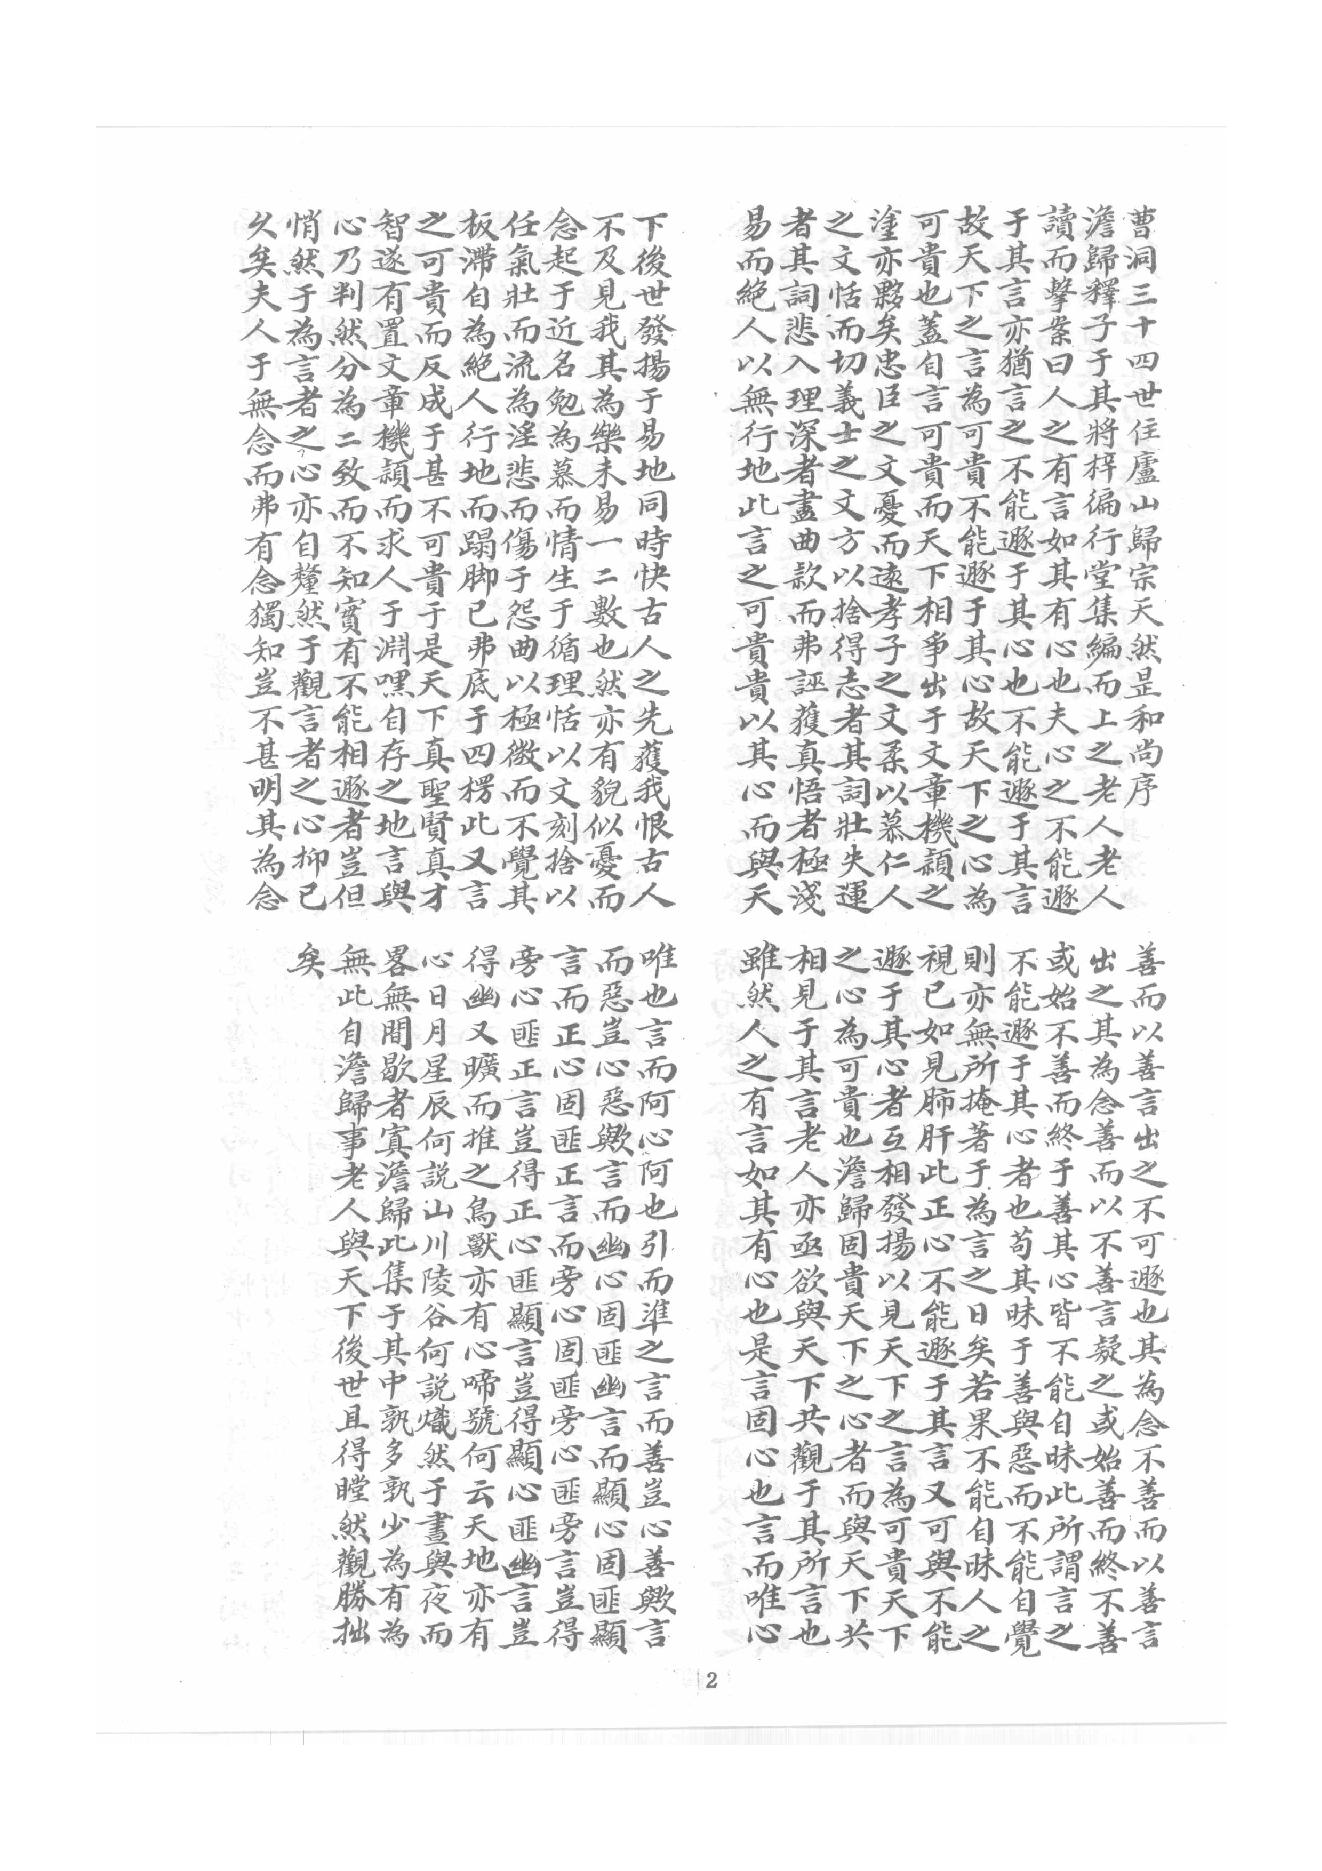 曹洞三十四世住廬山歸宗天然昰和尚序
澹歸釋子于其將梓徧行堂集編而上之老人老人
讀而擊案曰人之有言如其有心也夫心之不能遯
于其言亦猶言之不能遯于其心也不能遯于其言
故天下之言為可貴不能遯于其心故天下之心為
可貴也蓋自言可貴而天下相爭出于文章機穎之
塗亦夥矣忠臣之文憂而遠孝子之文柔以慕仁人
之文恬而切義士之文方以捨得志者其詞壯失運
者其詞悲入理深者盡曲款而弗誣獲真悟者極淺
易而絕人以無行地此言之可貴貴以其心而與天
下後世發揚于易地同時快古人之先獲我恨古人
不及見我其為樂未易一二數也然亦有貌似憂而
念起于近名勉為慕而情生于循理恬以文刻捨以
任氣壯而流為淫悲而傷于怨曲以極微而不覺其
板滯自為絕人行地而蹋脚已弗底于四楞此又言
之可貴而反成于甚不可貴于是天下真聖賢真才
智遂有置文章機穎而求人于淵嘿自存之地言與
心乃判然分為二致而不知實有不能相遯者豈但
悄然于為言者之心亦自釐然于觀言者之心抑已
久矣夫人于無念而弗有念獨知豈不甚明其為念
善而以善言出之不可遯也其為念不善而以善言
出之其為念善而以不善言疑之或始善而終不善
或始不善而終于善其心皆不能自昧此所謂言之
不能遯于其心者也苟其昧于善與惡而不能自覺
則亦無所掩著于為言之日矣若果不能自昧人之
視已如見肺肝此正心不能遯于其言又可與不能
遯于其心者互相發揚以見天下之言為可貴天下
之心為可貴也澹歸固貴天下之心者而與天下共
相見于其言老人亦亟欲與天下共觀于其所言也
雖然人之有言如其有心也是言固心也言而唯心
唯也言而阿心阿也引而準之言而善豈心善歟言
而惡豈心惡歟言而幽心固匪幽言而顯心固匪顯
言而正心固匪正言而旁心固匪旁心匪旁言豈得
旁心匪正言豈得正心匪顯言豈得顯心匪幽言豈
得幽又曠而推之鳥獸亦有心啼號何云天地亦有
心日月星辰何說山川陵谷何說熾然于晝與夜而
畧無間歇者寘澹歸此集于其中孰多孰少為有為
無此自澹歸事老人與天下後世且得瞠然觀勝拙
矣
2